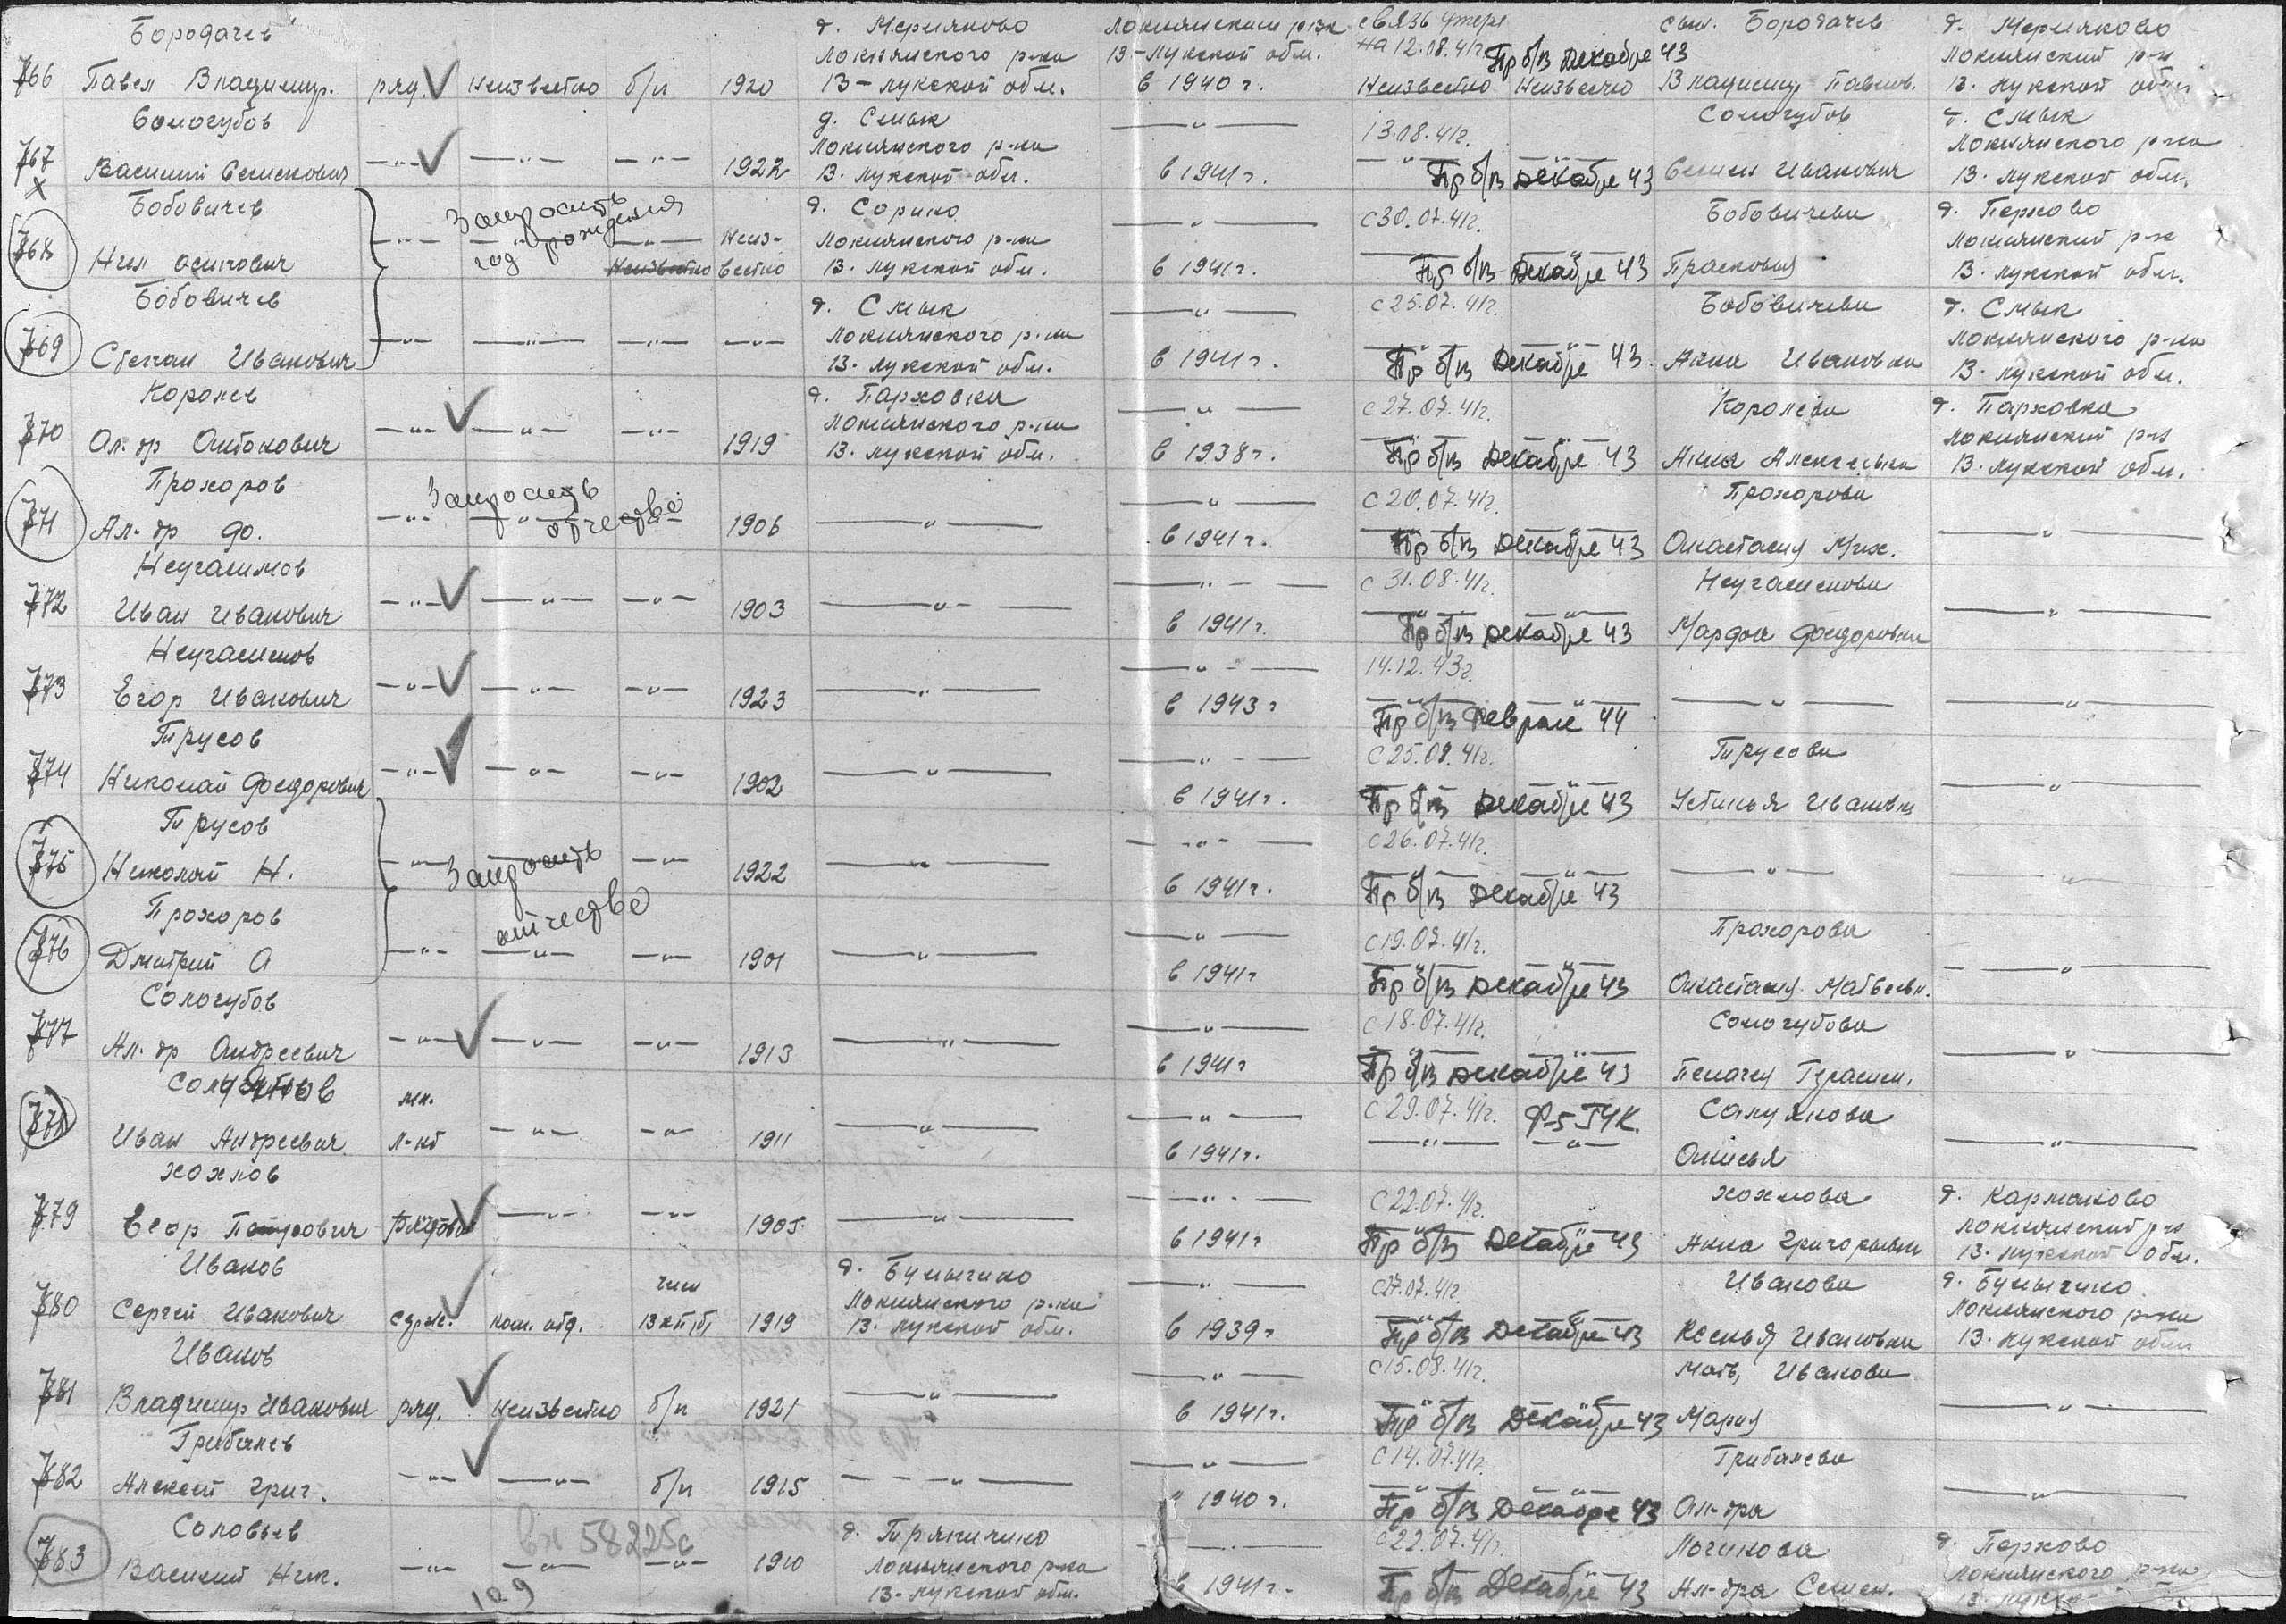 Бородачев д. Мерияково Локнянским рвк связь утеря сын. Бородачев д. Мерияково
Локнянского р-на В-Лукской обл. на 12.08.41г. Пр б/в декабре 43 Локнянский р-н
766 Павел Владимир. ряд. неизвестно б/п 1920 В-Лукской обл. в 1940 г. неизвестно неизвестно Владимир Павлов. В. Лукской обл.
Сологубов д. Смык —"— 13.08.41г. Сологубов д. Смык
Локнянского р-на Локнянского р-на
767 Василий Семенович —"— —"— —"— 1922 В. Лукской обл. в 1941 г. Пр б/в декабре 43 Семен Иванович В. Лукской обл.
Бобовичев Запросить год рождения д. Сорино —"— с 30.07.41г. Бобовичева д. Перхово
—"— —"— —"— Неиз- Локнянского р-на Локнянский р-н
768 Нил Осипович неизвестно вестно В. Лукской обл. в 1941 г. Пр б/в декабре 43 Прасковья В. Лукской обл.
Бобовичев д. Смык —"— с 25.07.41г. Бобовичева д. Смык
—"— —"— —"— —"— Локнянского р-на Локнянского р-на
769 Степан Иванович В. Лукской обл. в 1941 г. Пр б/в декабре 43 Анна Ивановна В. Лукской обл.
Королев д. Парховка —"— с 27.07.41г. Королева д. Парховка
—"— —"— —"— Локнянского р-на Локнянский р-н
770 Ал-др Антонович 1919 В. Лукской обл. в 1938 г. Пр б/в декабре 43 Анна Алексеевна В. Лукской обл.
Прохоров Запросить отчество —"— с 20.07.41г. Прохорова
771 Ал-др Ф. —"— —"— —"— 1906 —"— в 1941 г. Пр б/в декабре 43 Анастасия Мих. —"—
Неугасимов —"— с 31.08.41г. Неугасимова
772 Иван Иванович —"— —"— —"— 1903 —"— в 1941 г. Пр б/в декабре 43 Марфа Федоровна —"—
Неугасимов —"— 14.12.43г.
773 Егор Иванович —"— —"— —"— 1923 —"— в 1943 г Пр б/в феврале 44 —"— —"—
Трусов —"— с 25.08.41г. Трусова
774 Николай Федорович —"— —"— —"— 1902 —"— в 1941 г. Пр б/в декабре 43 Устинья Ивановн —"—
Трусов —"— с 26.07.41г.
775 Николай Н. —"— Запросить —"— 1922 —"— в 1941 г. Пр б/в декабре 43 —"— —"—
Прохоров отчество —"— с 19.07.41г. Прохорова
776 Дмитрий А —"— —"— —"— 1901 —"— в 1941 г Пр б/в декабре 43 Анастасия Матвеевн. —"—
Сологубов —"— с 18.07.41г. Сологубова
777 Ал-др Андреевич —"— —"— —"— 1913 —"— в 1941 г Пр б/в декабре 43 Пелагея Герасим. —"—
мл. —"— с 29.07.41г. Ф-5 ГУК. Салуянова
778 Иван Андреевич л-нт —"— —"— 1911 —"— в 1941 г. —"— —"— Анисья —"—
Хохлов —"— с 22.07.41г. Хохлова д. Кармаково
Локнянский р-н
779 Егор Петрович рядовой —"— —"— 1905. —"— в 1941 г Пр б/в декабре 43 Анна Григорьевн В. Лукской обл.
Иванов член д. Булычино —"— с 27.07.41г Иванова д. Булычино
Локнянского р-на Локнянского р-на
780 Сергей Иванович серж. ком. отд. ВКП/б/ 1919 В. Лукской обл. в 1939 г Пр б/в декабре 43 Ксенья Ивановна В. Лукской обл.
Иванов —"— с 15.08.41г. мать, Иванова
781 Владимир Иванович ряд. неизвестно б/п 1921 —"— в 1941 г. Пр б/в декабре 43 Мария —"—
Грибалев —"— с 14.07.41г. Грибалева
782 Алексей Григ. —"— —"— б/п 1915 —"— " 1940 г. Пр б/в декабре 43 Ал-дра —"—
Соловьев вх 58225с д. Тряпичино —"— с 22.07.41г. Логинова д. Перхово
Локнянского р-на Локнянского р-на
783 Василий Ник. —"— —"— —"— 1910 В-Лукской обл. в 1941 г. Пр б/в декабре 43 Ал-дра Семен.
109